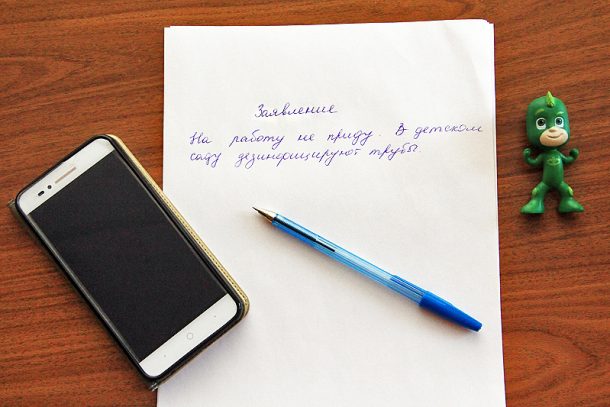 Заявление
На работу не приду. В детском
саду дезинфицируют трубы.